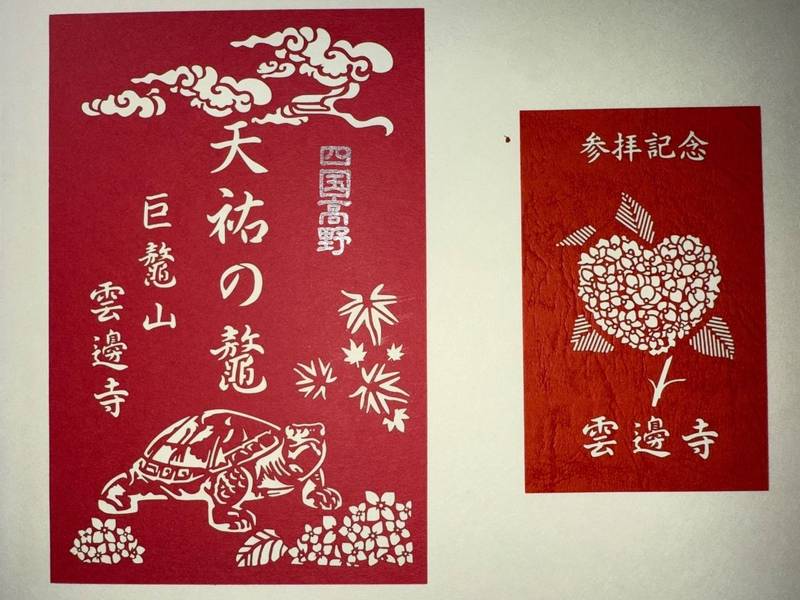 四国高野
天祐の鼇
巨鼇山
雲邊寺
参拝記念
雲邊寺